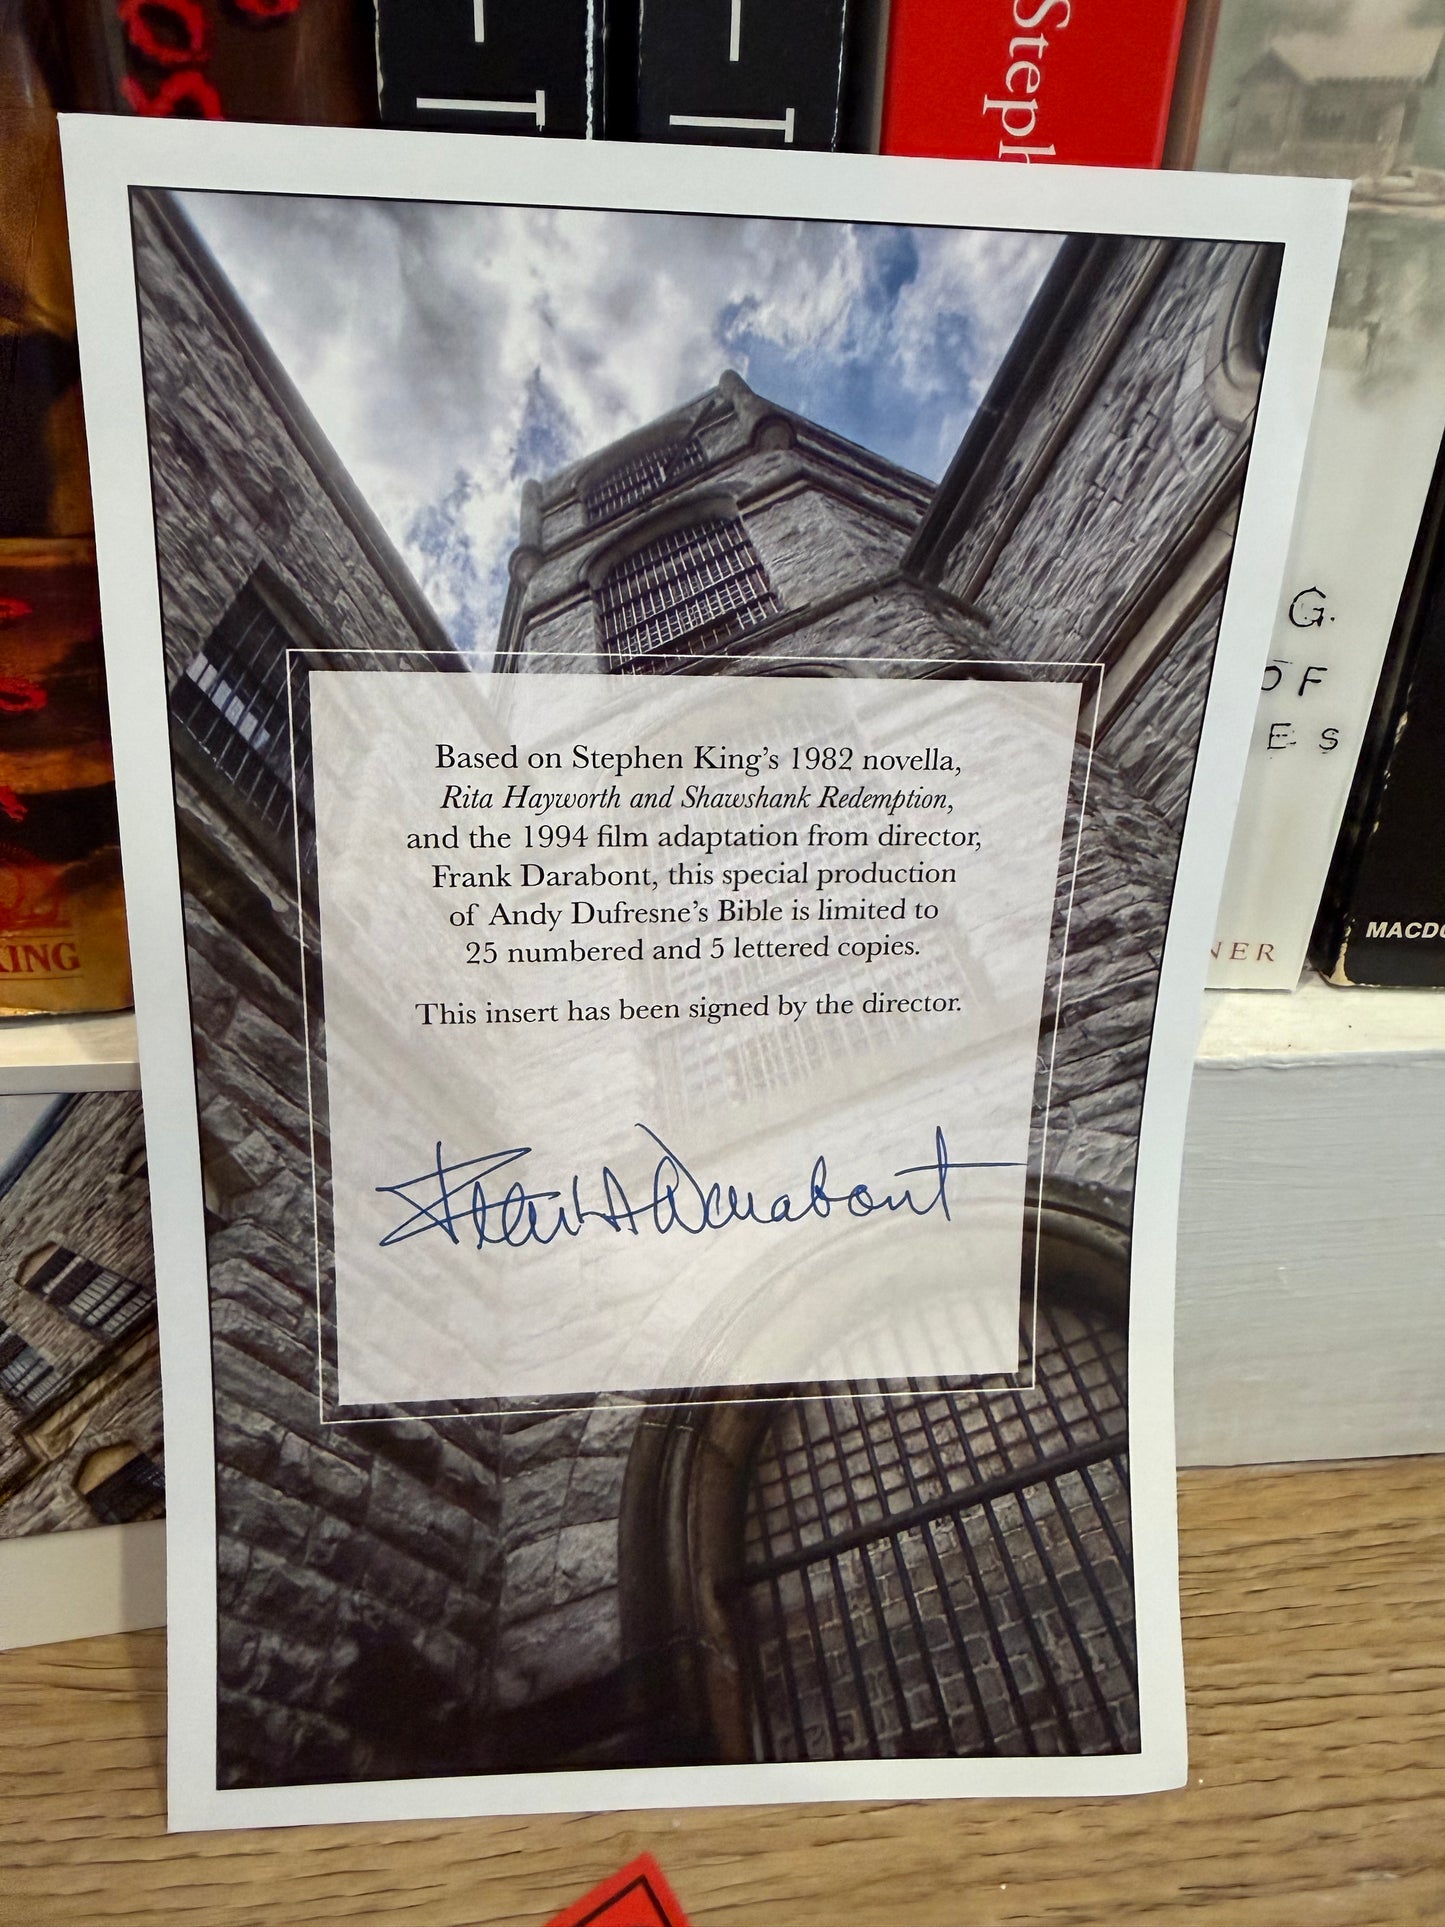 IT
IT
Steph
Based on Stephen King's 1982 novella,
Rita Hayworth and Shawshank Redemption,
and the 1994 film adaptation from director,
Frank Darabont, this special production
of Andy Dufresne's Bible is limited to
25 numbered and 5 lettered copies.
This insert has been signed by the director.
Frank A Darabont
G.
OF
ES
KING
NER
MACDO